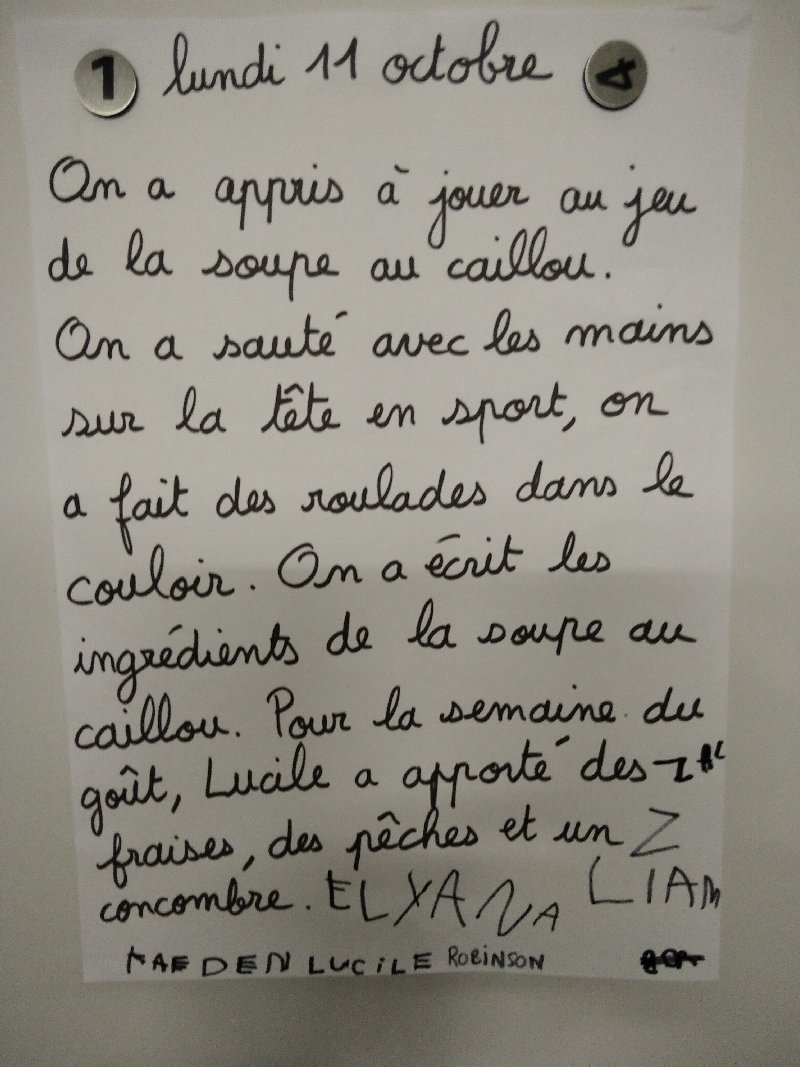 1 lundi 11 octobre 4
On a appris à jouer au jeu
de la soupe au caillou.
On a sauté avec les mains
sur la tête en sport, on
a fait des roulades dans le
couloir. On a écrit les
ingrédients de la soupe au
caillou. Pour la semaine du
goût, Lucile a apporté des
fraises, des pêches et un Z
concombre. ELYANA LIAM
KAEDEN LUCILE ROBINSON